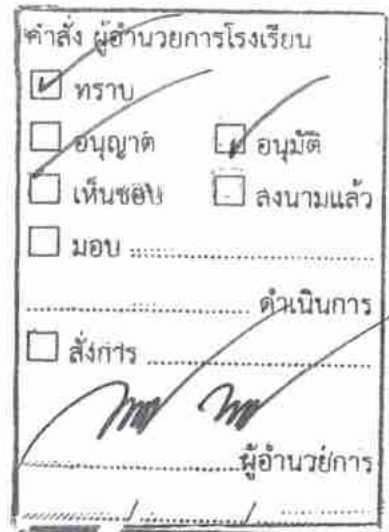 คำสั่ง ผู้อำนวยการโรงเรียน
ทราบ
อนุญาต อนุมัติ
เห็นชอบ ลงนามแล้ว
มอบ ....................
.................... ดำเนินการ
สั่งการ ....................
....................ผู้อำนวยการ
........../........../..........